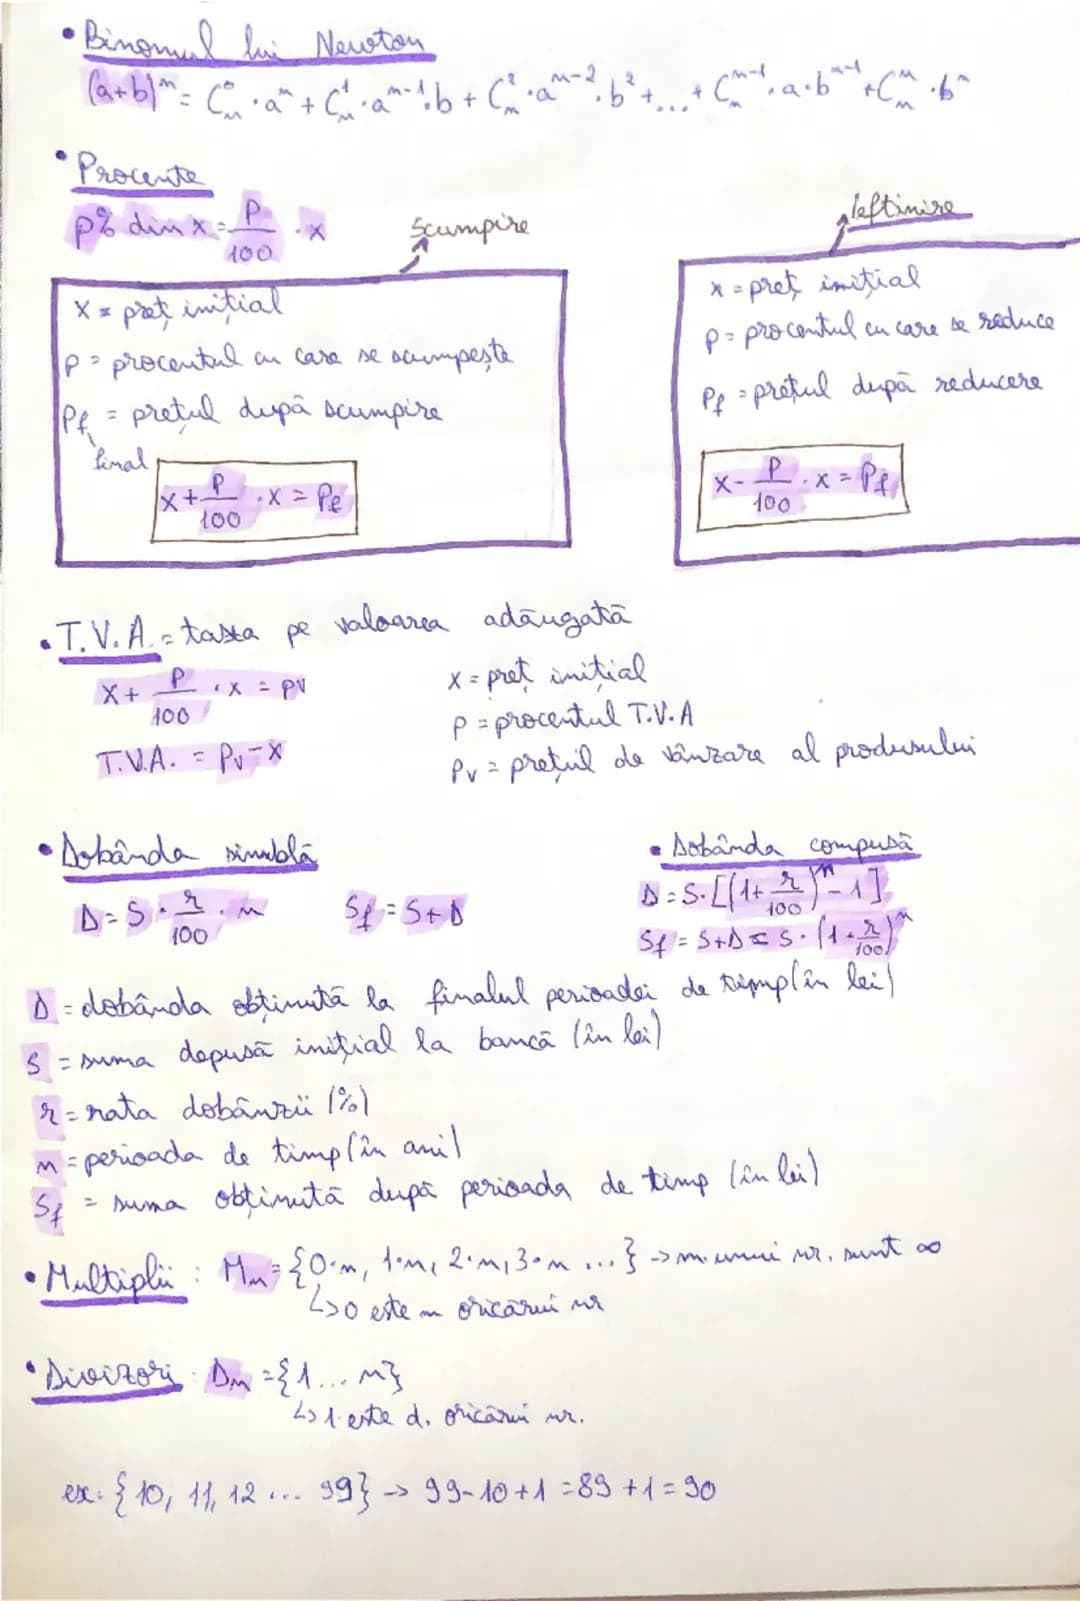 • Binomul lui Newton
(a+b)ⁿ = Cₙ⁰ · aⁿ + Cₙ¹ · aⁿ⁻¹ · b + Cₙ² · aⁿ⁻² · b² + ... + Cₙⁿ⁻¹ · a · bⁿ⁻¹ + Cₙⁿ · bⁿ
• Procente
p% din x = p/100 · x
scumpire
x = preț inițial
p = procentul cu care se scumpește
Pf = prețul după scumpire
final
x + p/100 · x = Pf
ieftinire
x = preț inițial
p = procentul cu care se reduce
Pf = prețul după reducere
x - p/100 · x = Pf
• T.V.A. = taxa pe valoarea adăugată
x + p/100 · x = pv
T.V.A. = Pv - x
x = preț inițial
p = procentul T.V.A
Pv = prețul de vânzare al produsului
• Dobânda simplă
D = S · r/100 · n
Sf = S + D
• Dobânda compusă
D = S · [(1 + r/100)ⁿ - 1]
Sf = S + D = S · (1 + r/100)ⁿ
D = dobânda obținută la finalul perioadei de timp (în lei)
S = suma depusă inițial la bancă (în lei)
r = rata dobânzii (%)
n = perioada de timp (în ani)
Sf = suma obținută după perioada de timp (în lei)
• Multiplii : Mₙ = {0·n, 1·n, 2·n, 3·n ...} → m. unui nr. sunt ∞
↳ 0 este m oricărui nr
• Divizori : Dₙ = {1 ... n}
↳ 1 este d. oricărui nr.
ex: {10, 11, 12 ... 99} → 99 - 10 + 1 = 89 + 1 = 90